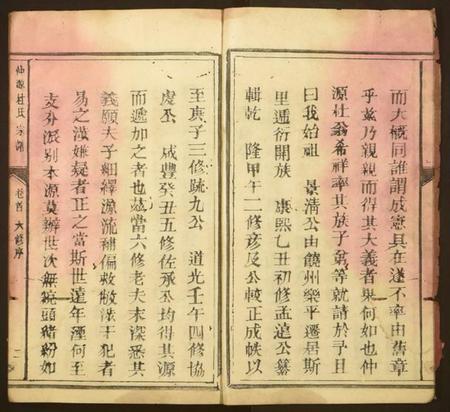 而大概同誰謂成憲具在遂不率由舊章
乎玆乃親親而得其大義者果何如也仲
源杜翁希祥率其族子等就請於予且
曰我始祖 景清公由饒州樂平遷居斯
里通衍開族 康熙乙丑初修孟遠公纂
輯乾 隆甲午二修彦及公較正成帙以
至庚子三修跣九公 道光壬午四修協
虔丕 咸豐癸丑五修佐承丕均得其源
而遞加之者也玆當六修老夫未深悉其
義願夫子細繹源流補偏救敝法干犯者
易之涉嫌疑者正之當斯世遠年湮何至
支分派别本源莫辦世次無統頭緒紛如
仲源杜氏宗譜 卷首 六修序 二